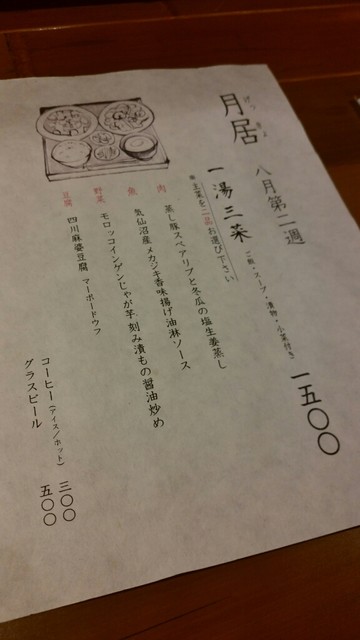 月居
げっきょ
八月第二週
一湯三菜
ご飯・スープ・漬物・小菜付き
一五〇〇
※主菜を二品お選び下さい
肉
蒸し豚スペアリブと冬瓜の塩生姜蒸し
魚
気仙沼産メカジキ香味揚げ油淋ソース
野菜
モロッコインゲンじゃが芋 刻み漬もの醤油炒め
豆腐
四川麻婆豆腐 マーボードウフ
コーヒー(アイス/ホット) 三〇〇
グラスビール 五〇〇